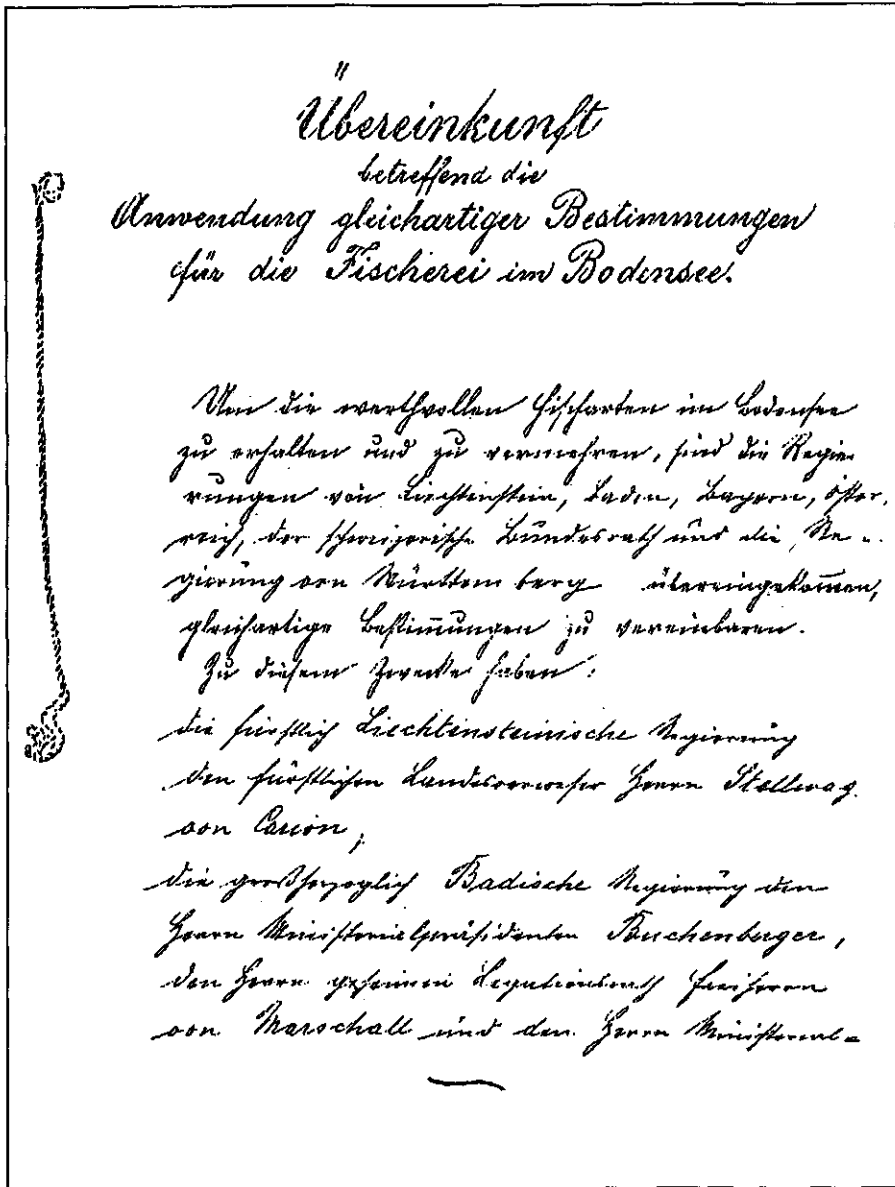 Übereinkunft
betreffend die
Anwendung gleichartiger Bestimmungen
für die Fischerei im Bodensee.
Um die werthvollen Fischarten im Bodensee
zu erhalten und zu vermehren, sind die Regie-
rungen von Liechtenstein, Baden, Bayern, Öster-
reich, der schweizerische Bundesrath und die Re-
gierung von Württemberg übereingekommen,
gleichartige Bestimmungen zu vereinbaren.
Zu diesem Zwecke haben:
die fürstlich Liechtensteinische Regierung
den fürstlichen Landesverweser Herrn Stellwag
von Carion,
die großherzoglich Badische Regierung den
Herrn Ministerialpräsidenten Buchenberger,
den Herrn geheimen Legationsrath Freiherrn
von Marschall und den Herrn Ministerial-